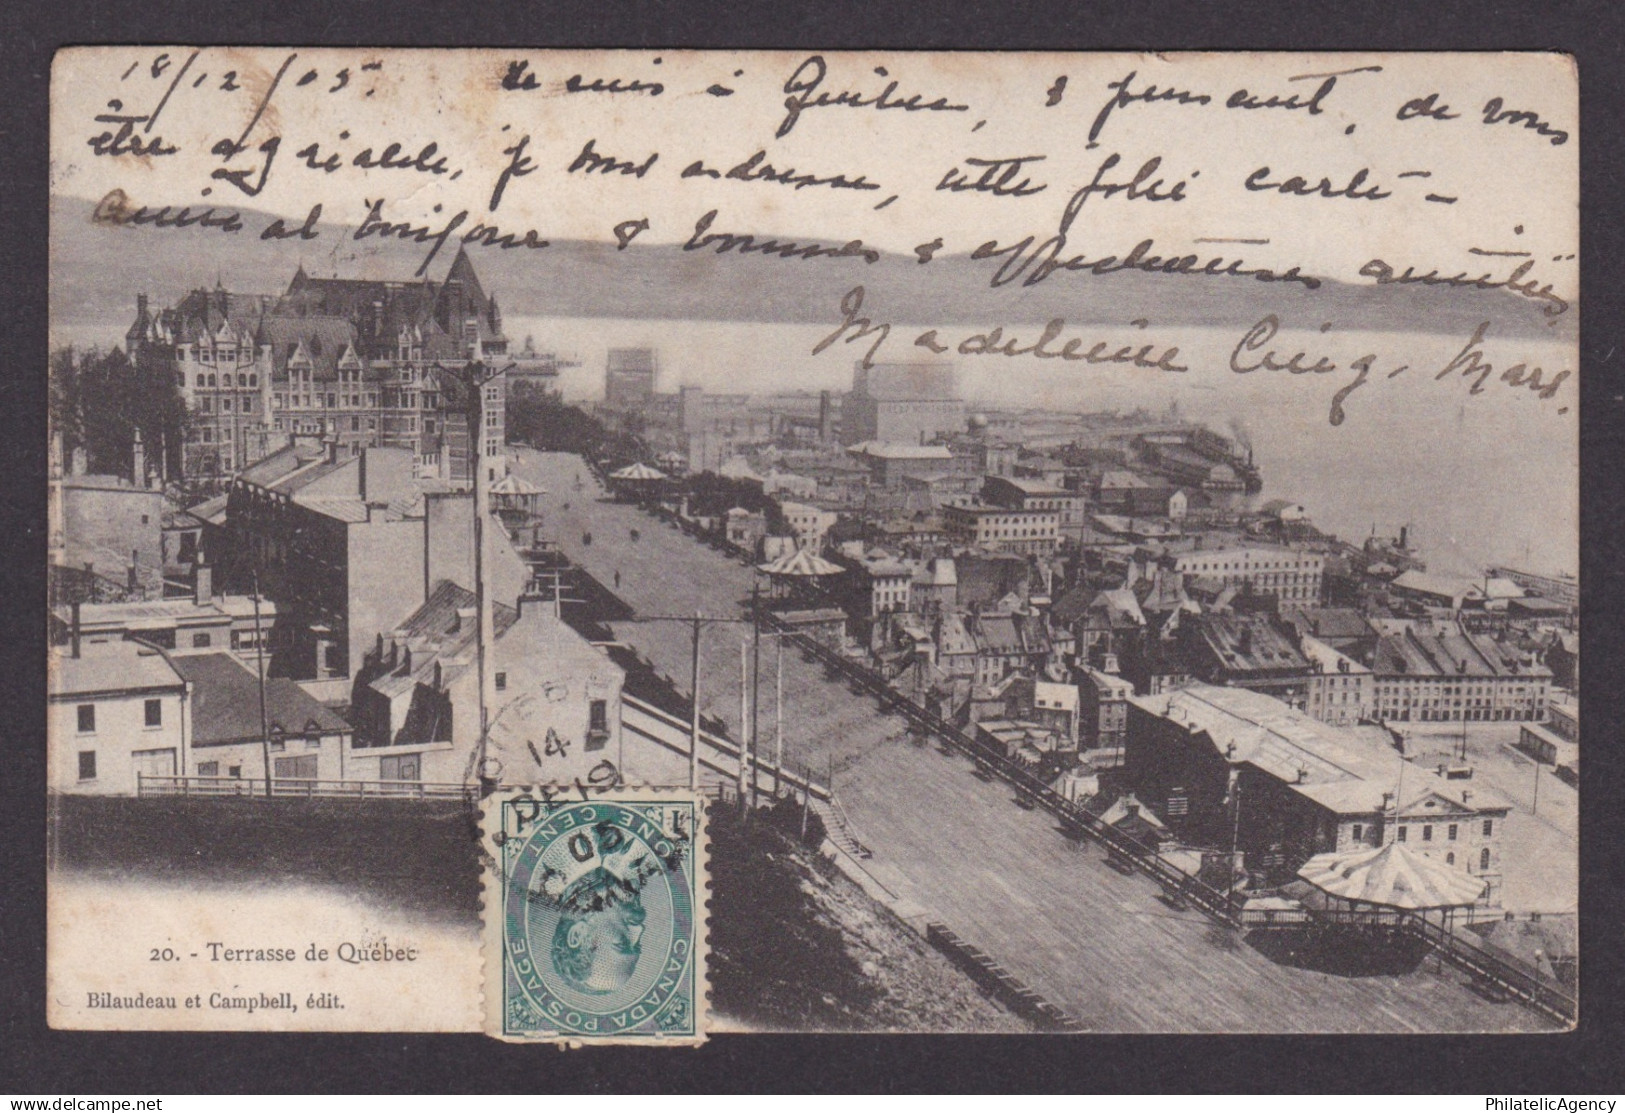 18/12/05. Je suis à Québec, & pensant, de vous
être agréable, je vous adresse, cette jolie carte -
amical bonjour & bonnes & affectueuses amitiés
Madeleine
QUEBEC
14
DE 19
05
CANADA
CANADA POSTAGE
ONE CENT
1 1
20. - Terrasse de Québec
Bilaudeau et Campbell, édit.
PhilatelicAgency